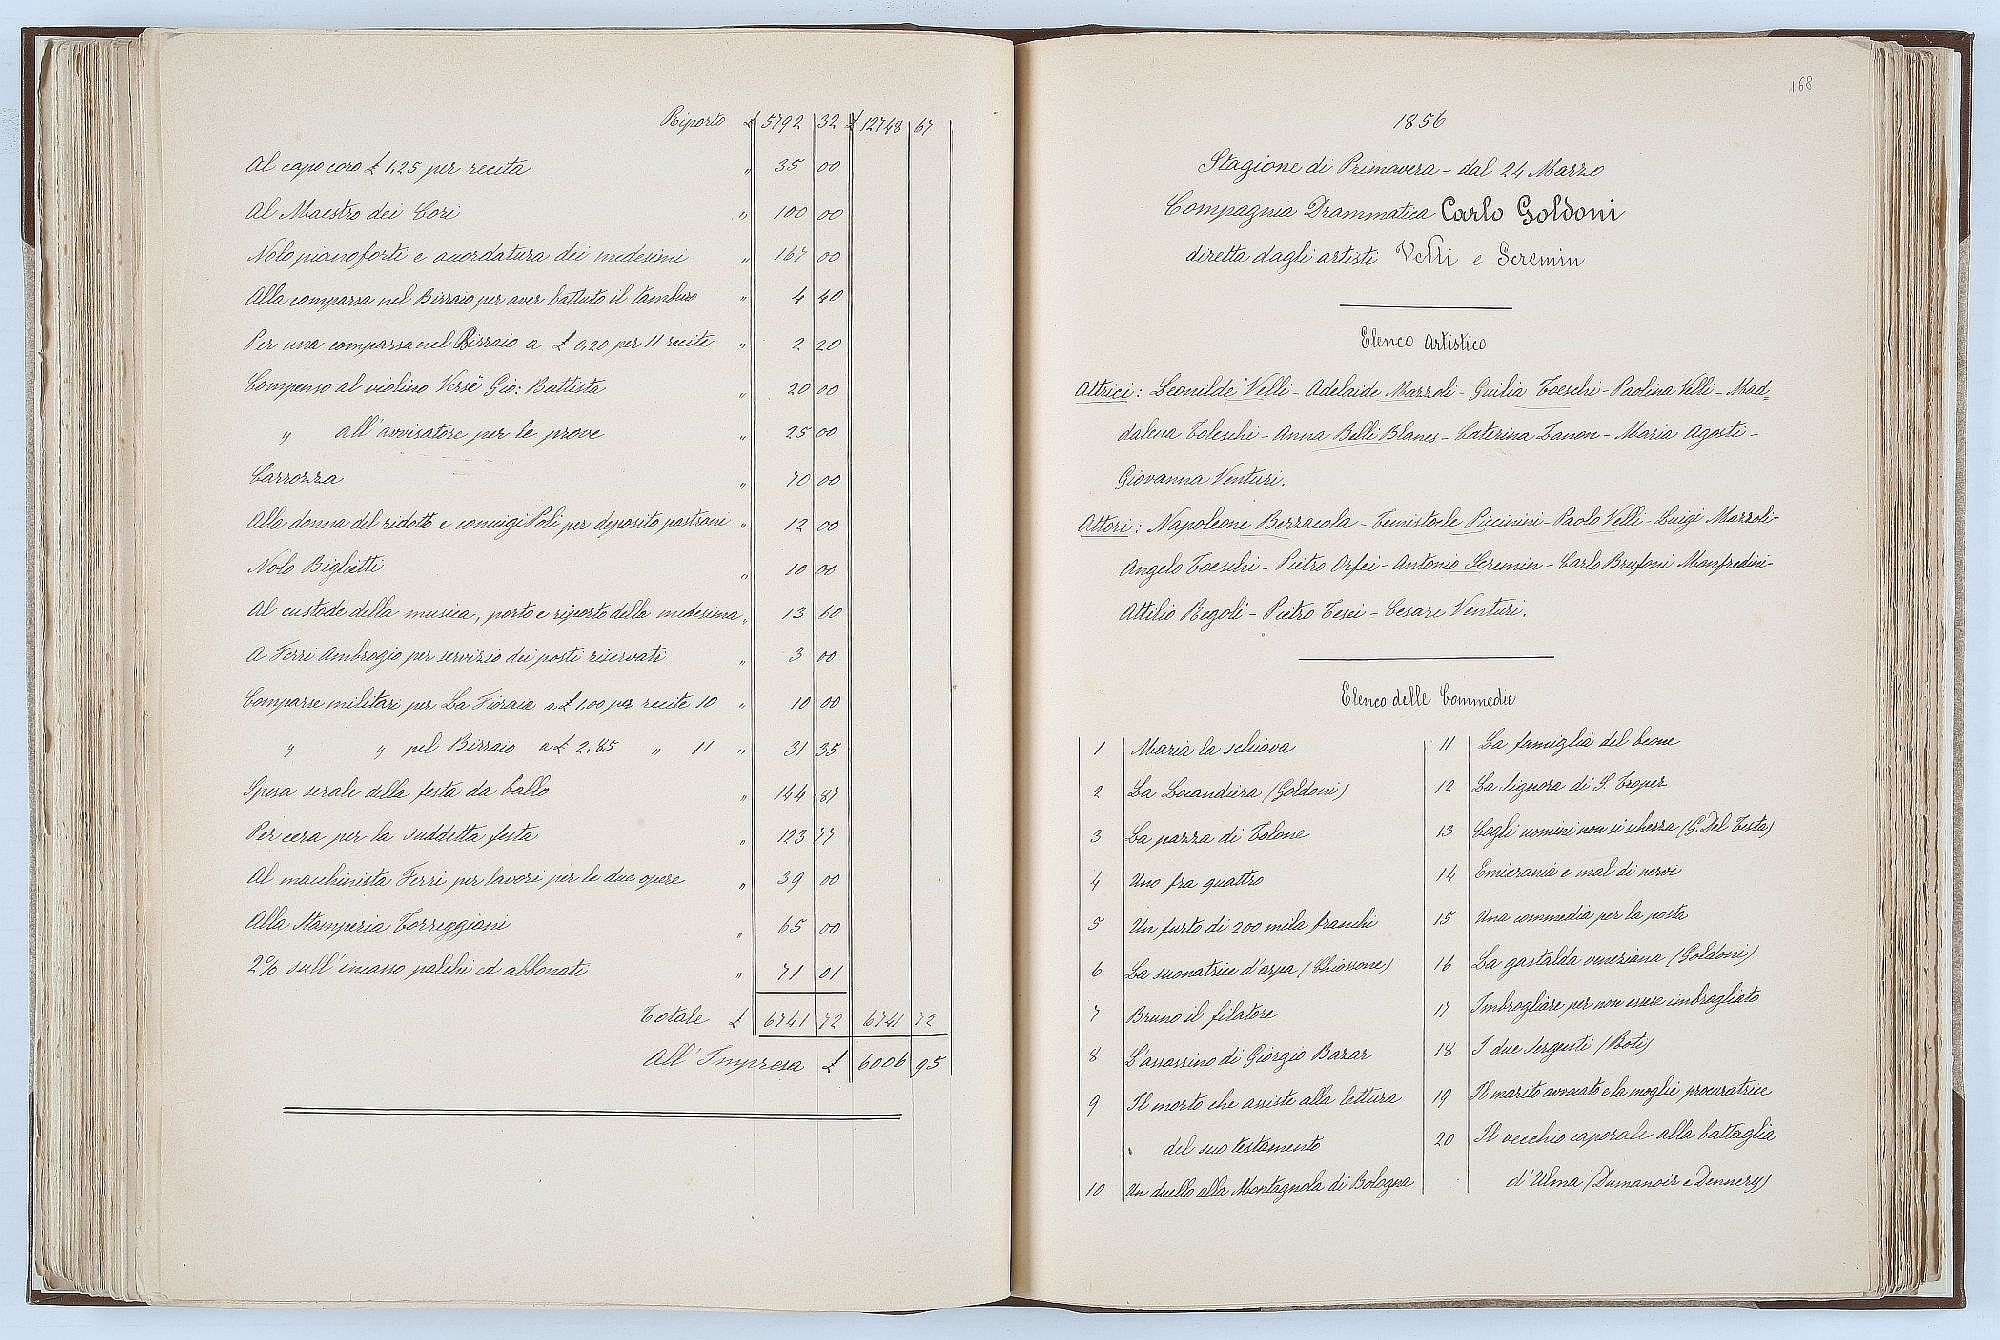 Riporto £ 5792 32 £ 12748 67
Al capo coro £ 1,25 per recita " 35 00
Al Maestro dei Cori " 100 00
Nolo pianoforti e accordatura dei medesimi " 167 00
Alla comparsa nel Birraio per aver battuto il tamburo " 4 40
Per una comparsa nel Birraio a £ 0,20 per 11 recite " 2 20
Compenso al violino Versè Gio: Battista " 20 00
" all'avvisatore per le prove " 25 00
Carrozza " 70 00
Alla donna del ridotto e coniugi Poli per deposito pastrani " 12 00
Nolo Biglietti " 10 00
Al custode della musica, porto e riporto della medesima " 13 60
A Ferri Ambrogio per servizio dei posti riservati " 3 00
Comparse militari per La Fioraia a £ 1,00 per recite 10 " 10 00
" " pel Birraio a £ 2,85 " 11 " 31 35
Spesa serale della festa da ballo " 144 87
Per cera per la suddetta festa " 123 77
Al macchinista Ferri per lavori per le due opere " 39 00
Alla Stamperia Torreggiani " 65 00
2% sull'incasso palchi ed abbonati " 71 01
Totale £ 6741 72 6741 72
All'Impresa £ 6006 95
168
1856
Stagione di Primavera - dal 24 Marzo
Compagnia Drammatica Carlo Goldoni
diretta dagli artisti Velli e Seremin
Elenco Artistico
Attrici: Leonilde Velli - Adelaide Mazzoli - Giulia Toeschi - Paolina Velli - Mad-
dalena Toleschi - Anna Belli Blanes - Caterina Zanon - Maria Agosti -
Giovanna Venturi.
Attori: Napoleone Bozzacola - Temistocle Piccinini - Paolo Velli - Luigi Mazzoli -
Angelo Toeschi - Pietro Orfei - Antonio Seremin - Carlo Brufoni Manfredini -
Attilio Regoli - Pietro Tesei - Cesare Venturi.
Elenco delle Commedie
1 Maria la schiava
2 La Locandiera (Goldoni)
3 La pazza di Tolone
4 Uno fra quattro
5 Un furto di 200 mila franchi
6 La suonatrice d'arpa (Chiossone)
7 Bruno il filatore
8 L'assassino di Giorgio Bazar
9 Il morto che assiste alla lettura
del suo testamento
10 Un duello alla Montagnola di Bologna
11 La famiglia del beone
12 La signora di S. Troper
13 Cogli uomini non si scherza (G. Del Testa)
14 Emicrania e mal di nervi
15 Una commedia per la posta
16 La gastalda veneziana (Goldoni)
17 Imbrogliare per non essere imbrogliato
18 I due Sergenti (Roti)
19 Il marito avvocato e la moglie procuratrice
20 Il vecchio caporale alla battaglia
d'Alma (Dumanoir e Dennery)